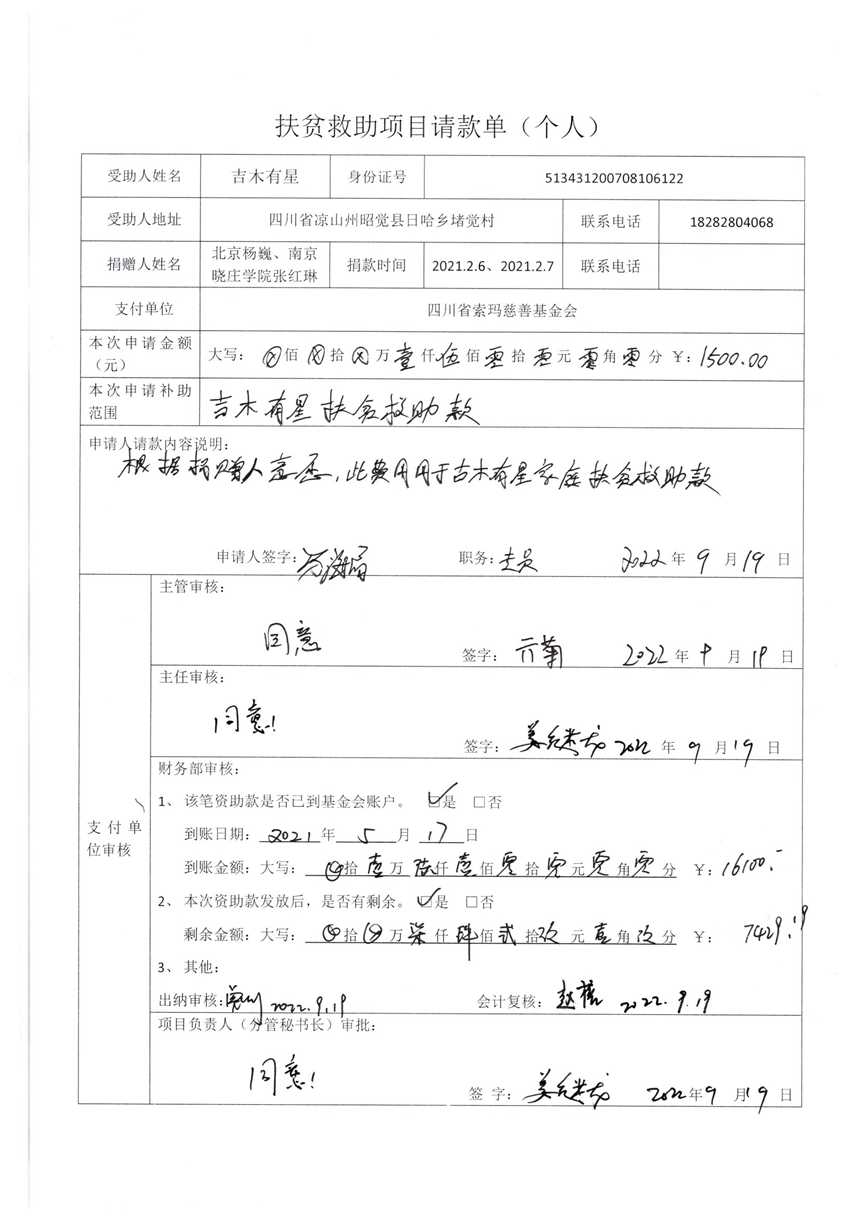 扶贫救助项目请款单（个人）
受助人姓名 吉木有星 身份证号 513431200708106122
受助人地址 四川省凉山州昭觉县日哈乡堵觉村 联系电话 18282804068
捐赠人姓名 北京杨巍、南京晓庄学院张红琳 捐款时间 2021.2.6、2021.2.7 联系电话
支付单位 四川省索玛慈善基金会
本次申请金额（元） 大写: ⊗佰⊗拾⊗万壹仟伍佰零拾零元零角零分 ¥: 1500.00
本次申请补助范围 吉木有星扶贫救助款
申请人请款内容说明:
根据捐赠人意愿,此费用用于吉木有星家庭扶贫救助款
申请人签字: 职务: 2022年9月19日
主管审核:
同意
签字: 2022年9月19日
主任审核:
同意!
签字: 2022年9月19日
支付单位审核
财务部审核:
1、 该笔资助款是否已到基金会账户。 ☑是 □否
到账日期: 2021年5月17日
到账金额: 大写: ⊗拾壹万陆仟壹佰零拾零元零角零分 ¥: 16100.-
2、 本次资助款发放后，是否有剩余。 ☑是 □否
剩余金额: 大写: ⊗拾⊗万柒仟肆佰贰拾玖元壹角玖分 ¥: 7429.19
3、 其他:
出纳审核: 2022.9.19 会计复核: 2022.9.19
项目负责人（分管秘书长）审批:
同意!
签 字: 2022年9月19日